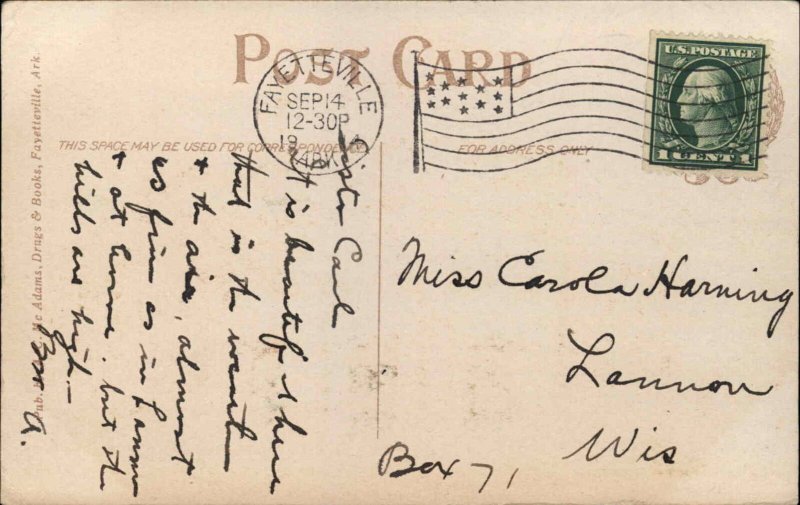 POST CARD
FAYETTEVILLE
SEP 14
12-30P
19
ARK
U.S. POSTAGE
1 CENT 1
THIS SPACE MAY BE USED FOR CORRESPONDENCE
FOR ADDRESS ONLY
Sister Carl
It is beautiful here
that is the
& the air, almost
as fine as in Lannon
& at home. but the
hills are high.—
A.
Miss Carola Harning
Lannon
Wis
Box 71
Pub. Mc Adams, Drugs & Books, Fayetteville, Ark.